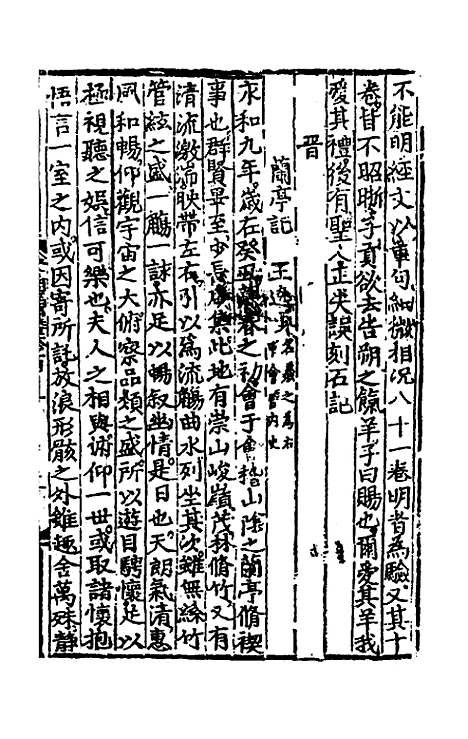 不能明經文以章句細微相況八十一卷明者為驗又其十
卷皆不昭晰子貢欲去告朔之餼羊子曰賜也爾愛其羊我
愛其禮後有聖人正失誤刻石記
晉
蘭亭記 王逸 名羲之為右 軍會嵇內史
永和九年歲在癸丑暮春之初會于會稽山陰之蘭亭脩禊
事也群賢畢至少長咸集此地有崇山峻嶺茂林脩竹又有
清流激湍映帶左右引以為流觴曲水列坐其次雖無絲竹
管絃之盛一觴一詠亦足以暢叙幽情是日也天朗氣清惠
風和暢仰觀宇宙之大俯察品類之盛所以遊目騁懷足以
極視聽之娛信可樂也夫人之相與俯仰一世或取諸懷抱
悟言一室之內或因寄所託放浪形骸之外雖趣舍萬殊靜